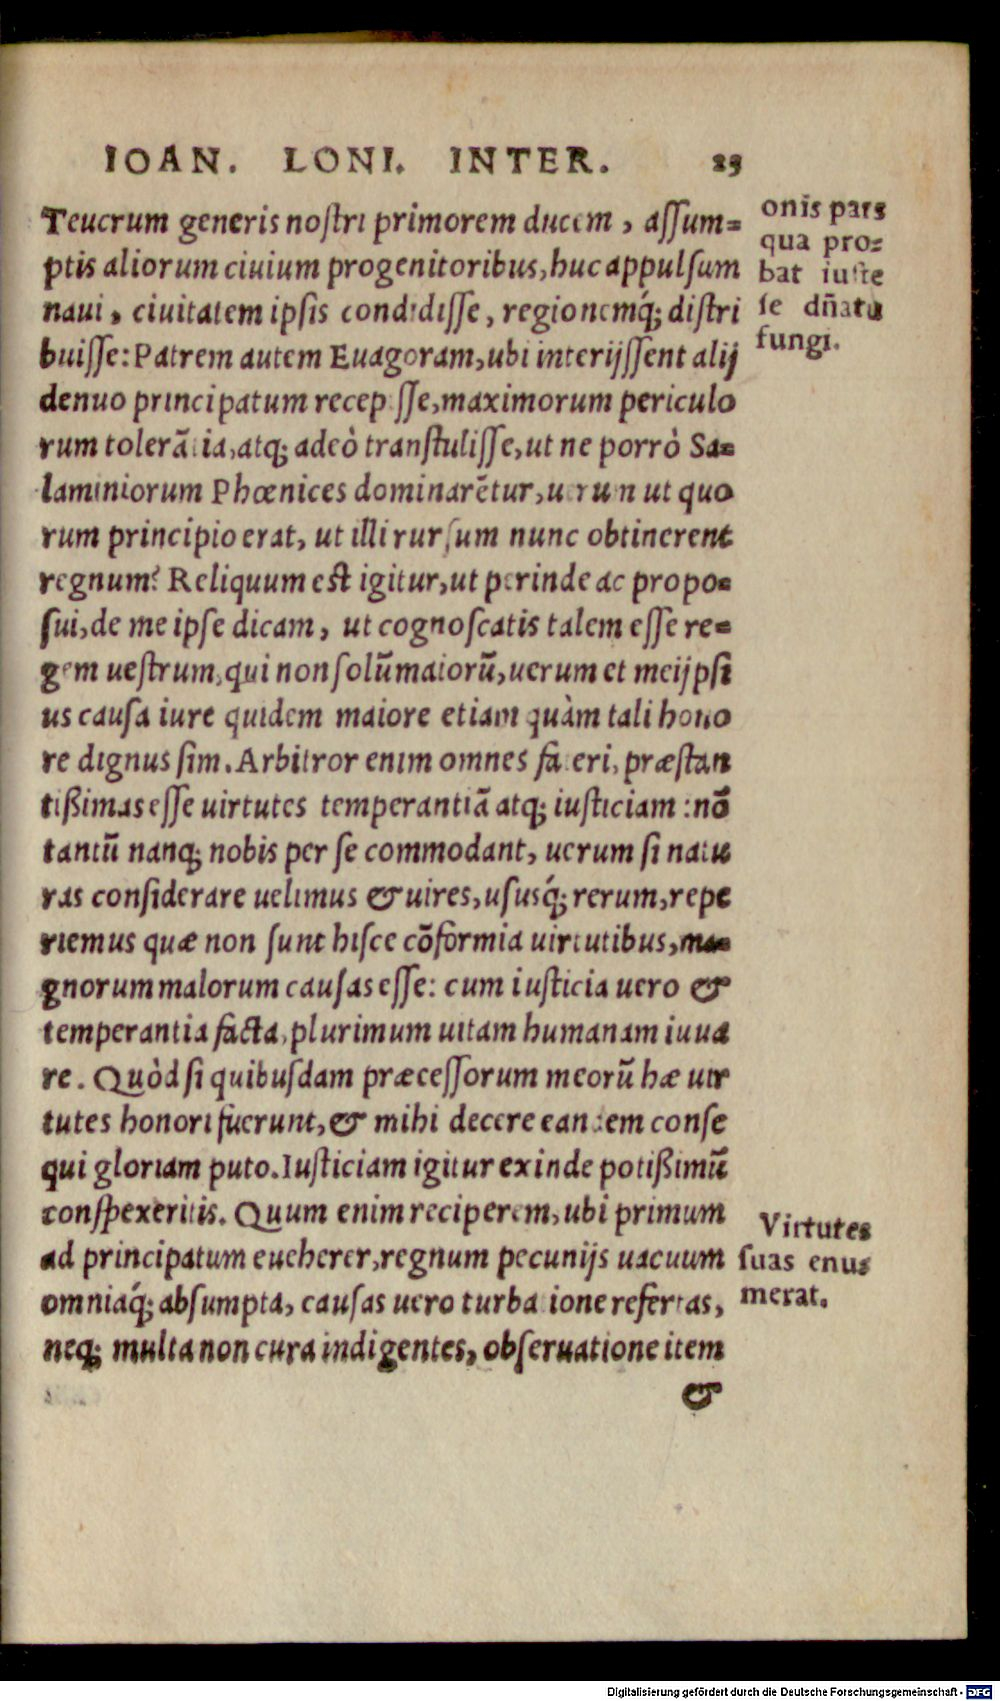 IOAN. LONI. INTER. 25
Teucrum generis noſtri primorem ducem, aſſum=
ptis aliorum ciuium progenitoribus, huc appulſum
naui, ciuitatem ipſis condidiſſe, regionemq́; diſtri
buiſſe: Patrem autem Euagoram, ubi interijſſent alij
denuo principatum recepiſſe, maximorum periculo
rum tolerãtia, atq; adeò tranſtuliſſe, ut ne porrò Sa=
laminiorum Phœnices dominarẽtur, uerum ut quo
rum principio erat, ut illi rurſum nunc obtinerent
regnum? Reliquum eſt igitur, ut perinde ac propo=
ſui, de me ipſe dicam, ut cognoſcatis talem eſſe re=
gem ueſtrum, qui non ſolũ maiorũ, uerum et meijpſi
us cauſa iure quidem maiore etiam quàm tali hono
re dignus ſim. Arbitror enim omnes fateri, præſtan
tißimas eſſe uirtutes temperantiã atq; iuſticiam: nõ
tantũ nanq; nobis per ſe commodant, uerum ſi natu
ras conſiderare uelimus & uires, uſusq́; rerum, repe
riemus quæ non ſunt hiſce cõformia uirtutibus, ma=
gnorum malorum cauſas eſſe: cum iuſticia uero &
temperantia facta, plurimum uitam humanam iuua
re. Quòd ſi quibuſdam præceſſorum meorũ hæ uir
tutes honori fuerunt, & mihi decere eandem conſe
qui gloriam puto. Iuſticiam igitur exinde potißimũ
conſpexeritis. Quum enim reciperem, ubi primum
ad principatum eueherer, regnum pecunijs uacuum
omniaq́; abſumpta, cauſas uero turbatione refertas,
neq; multa non cura indigentes, obſeruatione item
&
onis pars
qua pro=
bat iuſte
ſe dñatu
fungi.
Virtutes
ſuas enu=
merat.
Digitalisierung gefördert durch die Deutsche Forschungsgemeinschaft - DFG